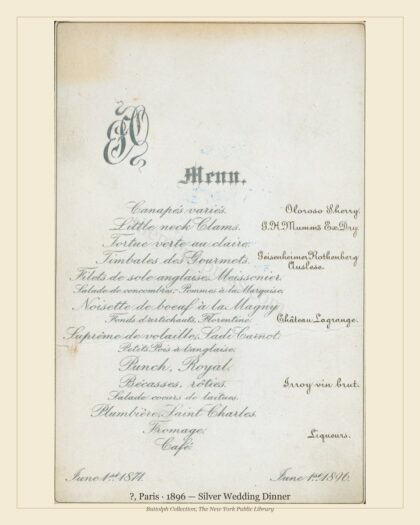 Menu.
Canapés variés. Oloroso Sherry.
Little neck Clams. G.H. Mumm's Ex. Dry.
Tortue verte au claire.
Timbales des Gourmets. Geisenheimer Rothenberg
Auslese.
Filets de sole anglaise, Meissonier.
Salade de concombres, Pommes à la Marquise.
Noisette de boeuf à la Magny.
Fonds d'artichauts, Florentine. Château Lagrange.
Suprême de volaille, Sadi Carnot.
Petits Pois à l'anglaise.
Punch, Royal.
Bécasses, rôties. Irroy vin brut.
Salade coeurs de laitues.
Plumbière, Saint Charles.
Fromage.
Liqueurs.
Café.
June 1st 1871. June 1st 1896.
?, Paris · 1896 — Silver Wedding Dinner
Buttolph Collection, The New York Public Library